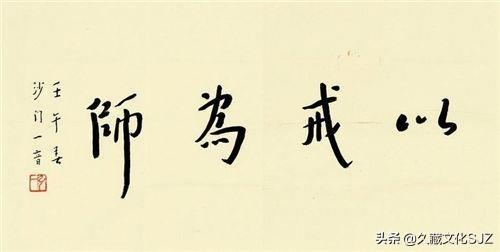 以戒為師
壬午春
沙门一音
头条 @久藏文化SJZ